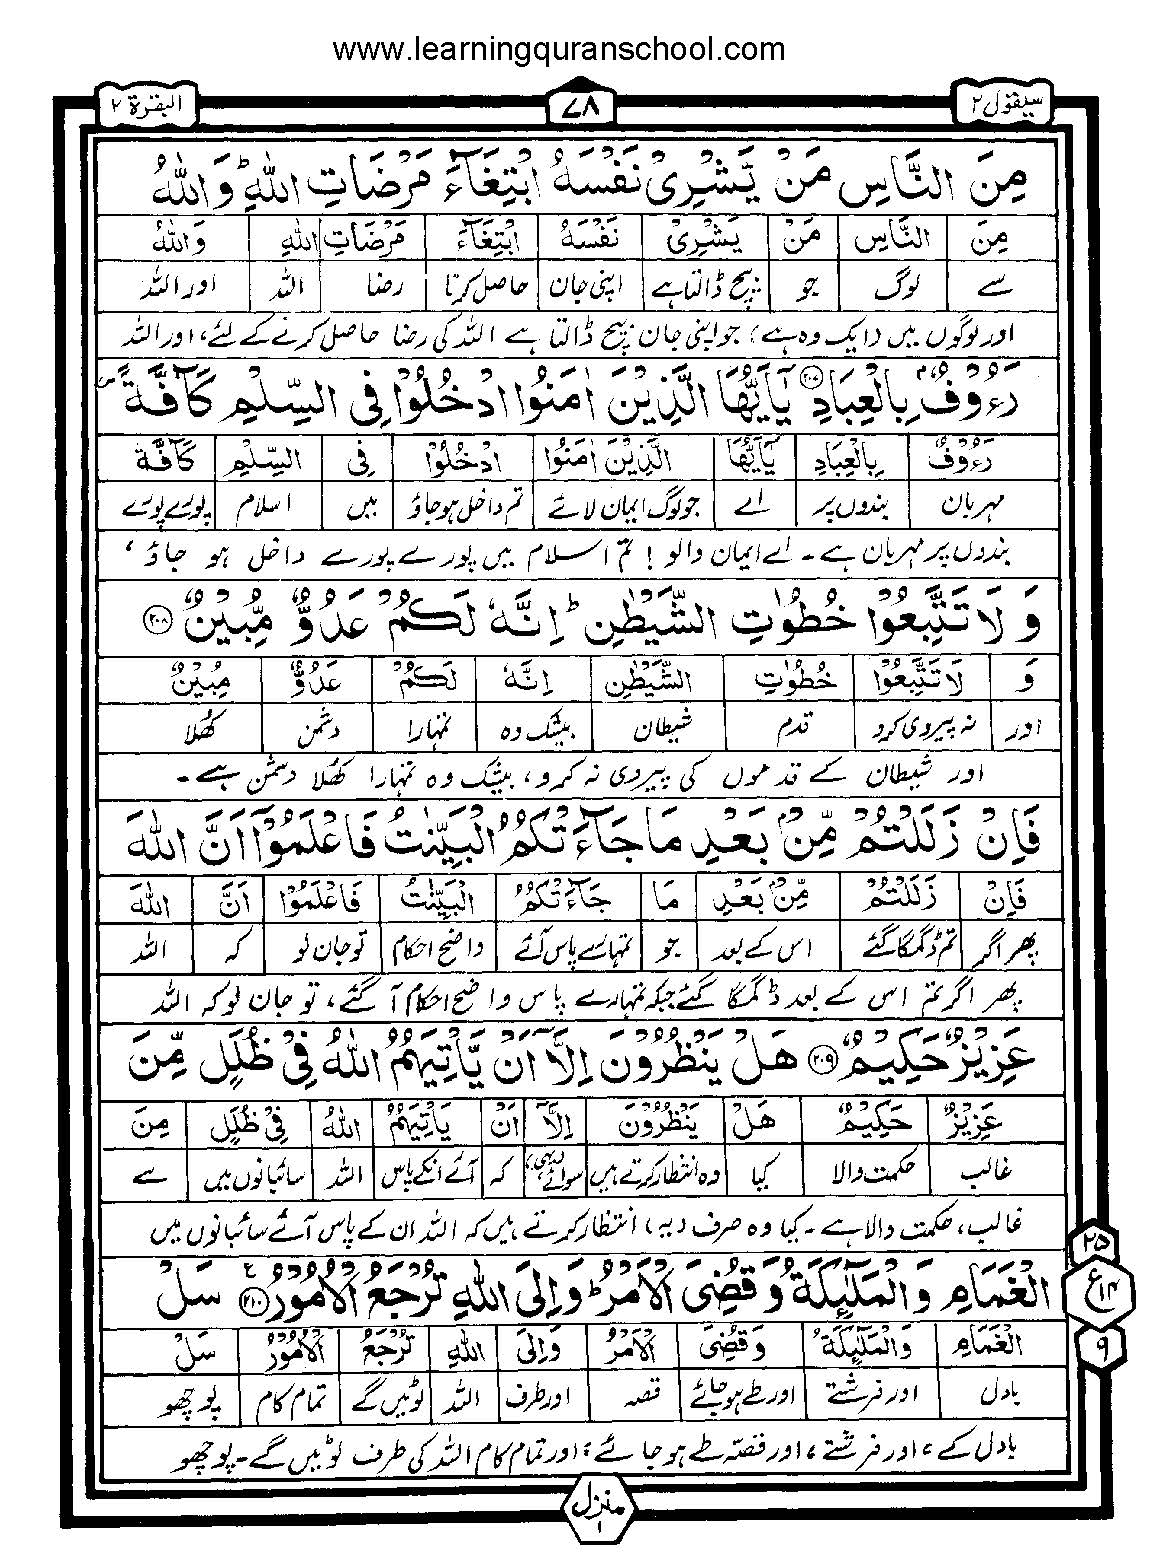 www.learningquranschool.com
سيقول ٢
٧٨
البقرة ٢
مِنَ النَّاسِ مَنْ يَّشْرِىْ نَفْسَهُ ابْتِغَآءَ مَرْضَاتِ اللّٰهِ ؕ وَاللّٰهُ
مِنَ النَّاسِ مَنْ يَّشْرِىْ نَفْسَهُ ابْتِغَآءَ مَرْضَاتِ اللّٰهِ وَاللّٰهُ
سے لوگ جو بیچ ڈالتا ہے اپنی جان حاصل کرنا رضا اللہ اور اللہ
اور لوگوں میں (ایک وہ ہے) جو اپنی جان بیچ ڈالتا ہے اللہ کی رضا حاصل کرنے کے لئے، اور اللہ
رَءُوْفٌۢ بِالْعِبَادِ ۲۰۷ يٰۤاَيُّهَا الَّذِيْنَ اٰمَنُوا ادْخُلُوْا فِى السِّلْمِ كَآفَّةً
رَءُوْفٌ بِالْعِبَادِ يٰۤاَيُّهَا الَّذِيْنَ اٰمَنُوا ادْخُلُوْا فِى السِّلْمِ كَآفَّةً
مہربان بندوں پر اے جو لوگ ایمان لائے تم داخل ہو جاؤ میں اسلام پورے پورے
بندوں پر مہربان ہے۔ اے ایمان والو! تم اسلام میں پورے پورے داخل ہو جاؤ ،
وَّلَا تَتَّبِعُوْا خُطُوٰتِ الشَّيْطٰنِ ؕ اِنَّهٗ لَكُمْ عَدُوٌّ مُّبِيْنٌ ۲۰۸
وَ لَا تَتَّبِعُوْا خُطُوٰتِ الشَّيْطٰنِ اِنَّهٗ لَكُمْ عَدُوٌّ مُّبِيْنٌ
اور نہ پیروی کرو قدم شیطان بیشک وہ تمہارا دشمن کھلا
اور شیطان کے قدموں کی پیروی نہ کرو، بیشک وہ تمہارا کھلا دشمن ہے۔
فَاِنْ زَلَلْتُمْ مِّنْۢ بَعْدِ مَا جَآءَتْكُمُ الْبَيِّنٰتُ فَاعْلَمُوْۤا اَنَّ اللّٰهَ
فَاِنْ زَلَلْتُمْ مِّنْۢ بَعْدِ مَا جَآءَتْكُمُ الْبَيِّنٰتُ فَاعْلَمُوْۤا اَنَّ اللّٰهَ
پھر اگر تم ڈگمگا گئے اس کے بعد جو تمہارے پاس آئے واضح احکام تو جان لو کہ اللہ
پھر اگر تم اس کے بعد ڈگمگا گئے جبکہ تمہارے پاس واضح احکام آ گئے، تو جان لو کہ اللہ
عَزِيْزٌ حَكِيْمٌ ۲۰۹ هَلْ يَنْظُرُوْنَ اِلَّاۤ اَنْ يَّاْتِيَهُمُ اللّٰهُ فِىْ ظُلَلٍ مِّنَ
عَزِيْزٌ حَكِيْمٌ هَلْ يَنْظُرُوْنَ اِلَّاۤ اَنْ يَّاْتِيَهُمُ اللّٰهُ فِىْ ظُلَلٍ مِّنَ
غالب حکمت والا کیا وہ انتظار کرتے ہیں سوائے (یہی) کہ آئے انکے پاس اللہ سائبانوں میں سے
غالب، حکمت والا ہے۔ کیا وہ صرف (یہ) انتظار کرتے ہیں کہ اللہ ان کے پاس آئے سائبانوں میں
الْغَمَامِ وَالْمَلٰٓئِكَةُ وَقُضِىَ الْاَمْرُ ؕ وَاِلَى اللّٰهِ تُرْجَعُ الْاُمُوْرُ ۲۱۰ سَلْ
الْغَمَامِ وَالْمَلٰٓئِكَةُ وَقُضِىَ الْاَمْرُ وَاِلَى اللّٰهِ تُرْجَعُ الْاُمُوْرُ سَلْ
بادل اور فرشتے اور طے ہو جائے قصہ اور طرف اللہ لوٹیں گے تمام کام پوچھو
بادل کے، اور فرشتے، اور قصہ طے ہو جائے؛ اور تمام کام اللہ کی طرف لوٹیں گے۔ پوچھو
۲۵
ع ۱۴
۹
منزل ۱